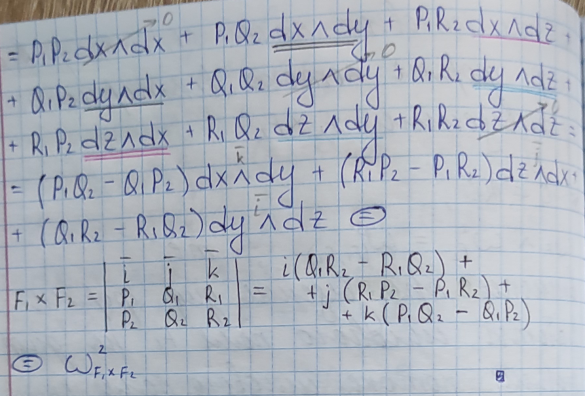 = P₁P₂ dx∧dx → 0 + P₁Q₂ dx∧dy + P₁R₂ dx∧dz +
+ Q₁P₂ dy∧dx + Q₁Q₂ dy∧dy → 0 + Q₁R₂ dy∧dz +
+ R₁P₂ dz∧dx + R₁Q₂ dz∧dy + R₁R₂ dz∧dz → 0 =
= (P₁Q₂ − Q₁P₂) dx∧dy k̄ + (R₁P₂ − P₁R₂) dz∧dx j̄ +
+ (Q₁R₂ − R₁Q₂) dy∧dz ī ⊜
F₁ × F₂ = | ī j̄ k̄ | = i(Q₁R₂ − R₁Q₂) +
| P₁ Q₁ R₁ | + j(R₁P₂ − P₁R₂) +
| P₂ Q₂ R₂ | + k(P₁Q₂ − Q₁P₂)
⊜ ω²F₁×F₂